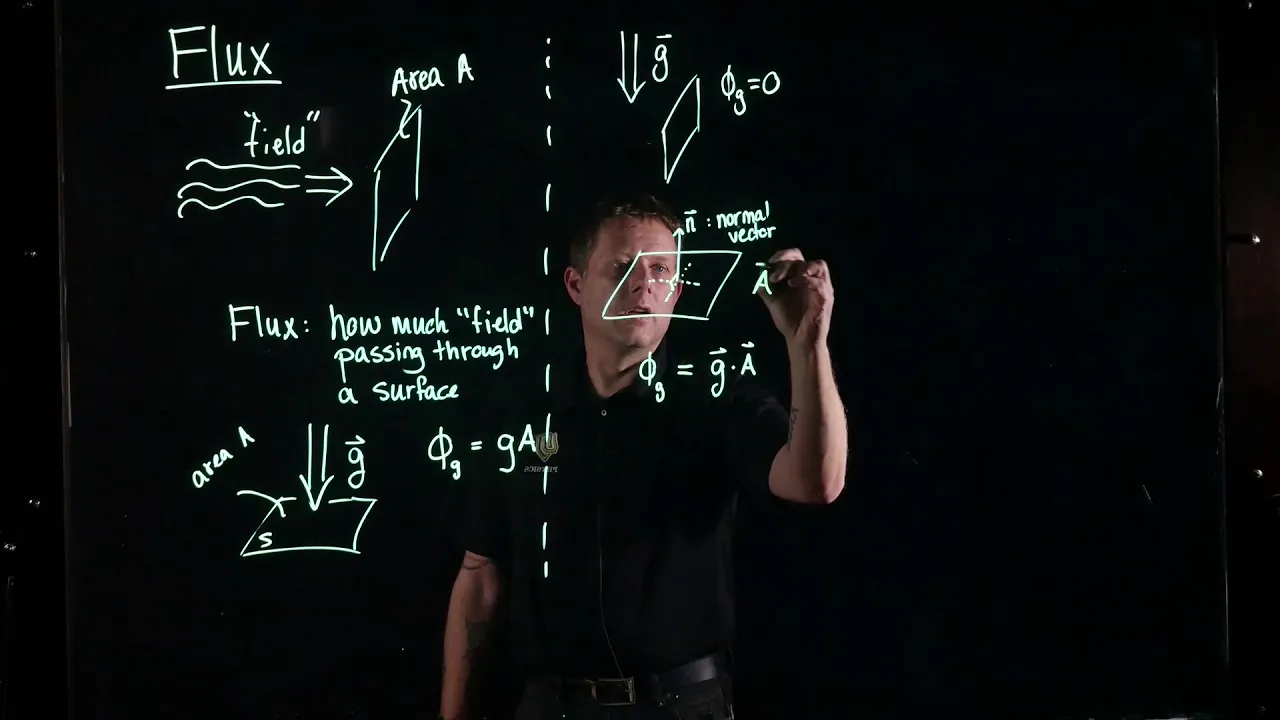 Flux
"field"
Area A
Flux: how much "field"
passing through
a surface
area A
g⃗
ϕg = gA
S
g⃗
ϕg=0
n⃗ : normal
vector
A⃗
ϕg = g⃗·A⃗